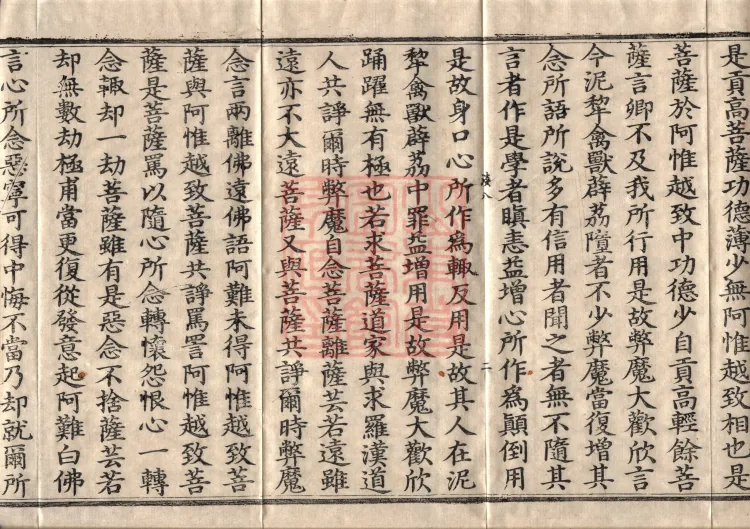 是貢高菩薩功德薄少無阿惟越致相也是
菩薩於阿惟越致中功德少自貢高輕餘菩
薩言卿不及我所行用是故弊魔大歡欣言
今泥犂禽獸薜荔隨者不少弊魔當復增其
念所語所說多有信用者聞之者無不隨其
言者作是學者瞋恚益增心所作為顛倒用
是故身口心所作為輙反用是故其人在泥
犂禽獸薜荔中罪益增用是故弊魔大歡欣
踊躍無有極也若求菩薩道家與求羅漢道
人共諍爾時弊魔自念菩薩離薩芸若遠雖
遠亦不大遠菩薩又與菩薩共諍爾時弊魔
念言兩離佛遠佛語阿難未得阿惟越致菩
薩與阿惟越致菩薩共諍罵詈阿惟越致菩
薩是菩薩罵以隨心所念轉懷怨恨心一轉
念輙却一劫菩薩雖有是惡念不捨薩芸若
却無數劫極甫當更復從發意起阿難白佛
言心所念惡寧可得中悔不當乃却就爾所